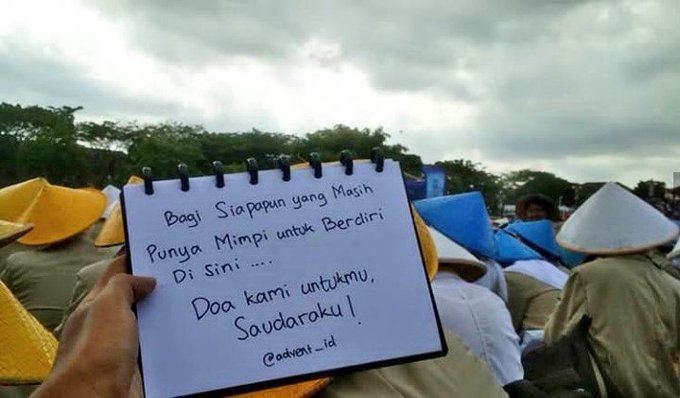 Bagi Siapapun yang Masih
Punya Mimpi untuk Berdiri
Di Sini ....
Doa kami untukmu,
Saudaraku!
@advent_id